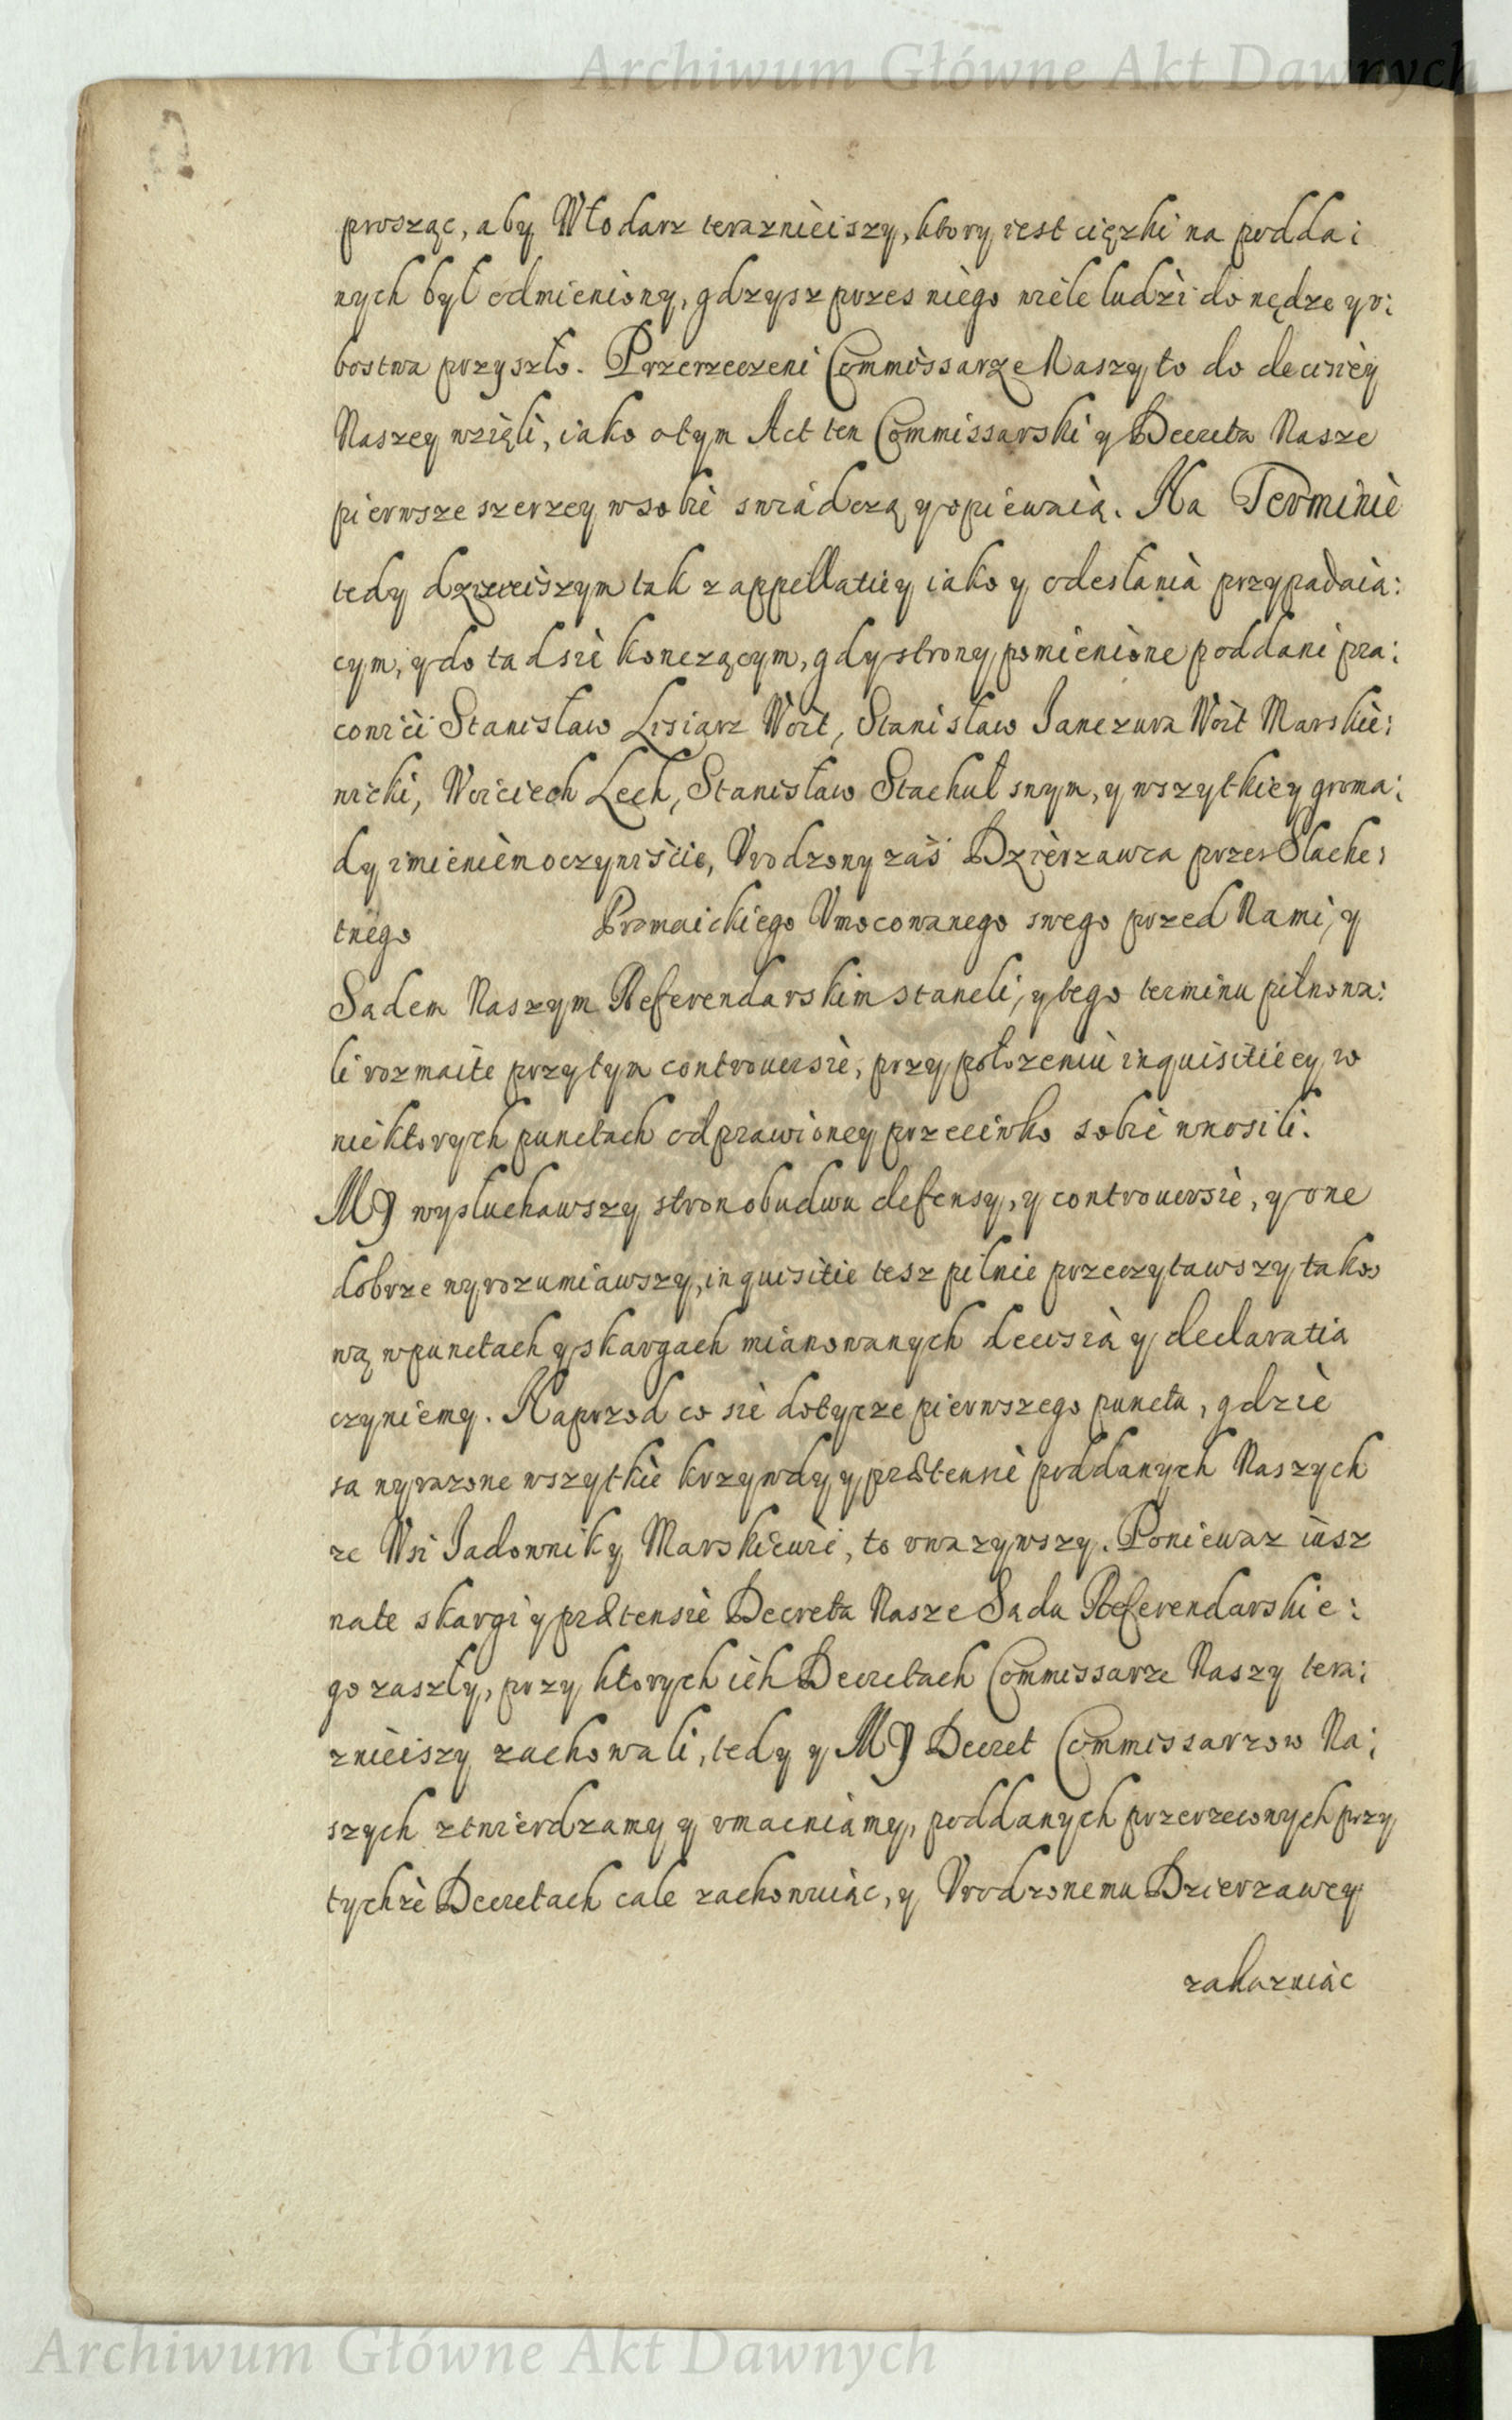 Archiwum Główne Akt Dawnych
prosząc, aby Włodarz teraznieiszy, ktory iest cięzki na podda:
nych był odmieniony, gdzysz przes niego wiele ludzi do nędze y v:
bostwa przyszło. Przerzeczeni Commissarze Naszy to do decisiey
Naszey wzięli, iako o tym Act ten Commissarski y Decreta Nasze
pierwsze szerzey w sobie swiadczą y opiewaią. Na Terminie
tedy dzisieiszym tak z appellatiey iako y odesłania przypadaią:
cym, y do tad sie konczącym, gdy strony pomienione poddani pra:
cowici Stanisław Lisiarz Woit, Stanisław Janczura Woit Marskie:
wicki, Woiciech Lech, Stanisław Stachuł snym, y wszytkiey groma:
dy imieniem oczywiscie, Vrodzony zaś Dzierzawca przes Slache:
tnego Promaickiego Vmocowanego swego przed Nami, y
Sadem Naszym Referendarskim staneli, y tego terminu pilnowa:
li rozmaite przytym controuersie, przy połozeniu inquisitiey w
niektorych punctach odprawioney przeciwko sobie wnosili.
MY wysłuchawszy stron obudwu defensy, y controuersie, y one
dobrze wyrozumiawszy, inquisitie tesz pilnie przeczytawszy tako
wą w punctach y skargach mianowanych decisia y declaratia
czyniemy. Naprzod co sie dotycze pierwszego punctu, gdzie
sa wyrazone wszytkie krzywdy y prætensie poddanych Naszych
ze Wsi Jadowniky Marskiewie, to vwazywszy. Poniewaz iusz
na te skargi y prætensie Decreta Nasze Sadu Referendarskie:
go zaszły, przy ktorych ich Decretach Commissarze Naszy tera:
znieiszy zachowali, tedy y MY Decret Commissarzow Na:
szych ztwierdzamy y vmacniamy, poddanych przerzeconych przy
tychże Decretach cale zachowuiąc, y Vrodzonemu Dzierzawcy
zakazuiąc
Archiwum Główne Akt Dawnych